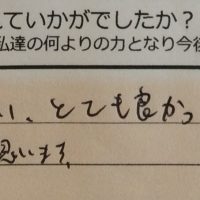 していかがでしたか？
私達の何よりの力となり今後
い、とても良かっ
思います。